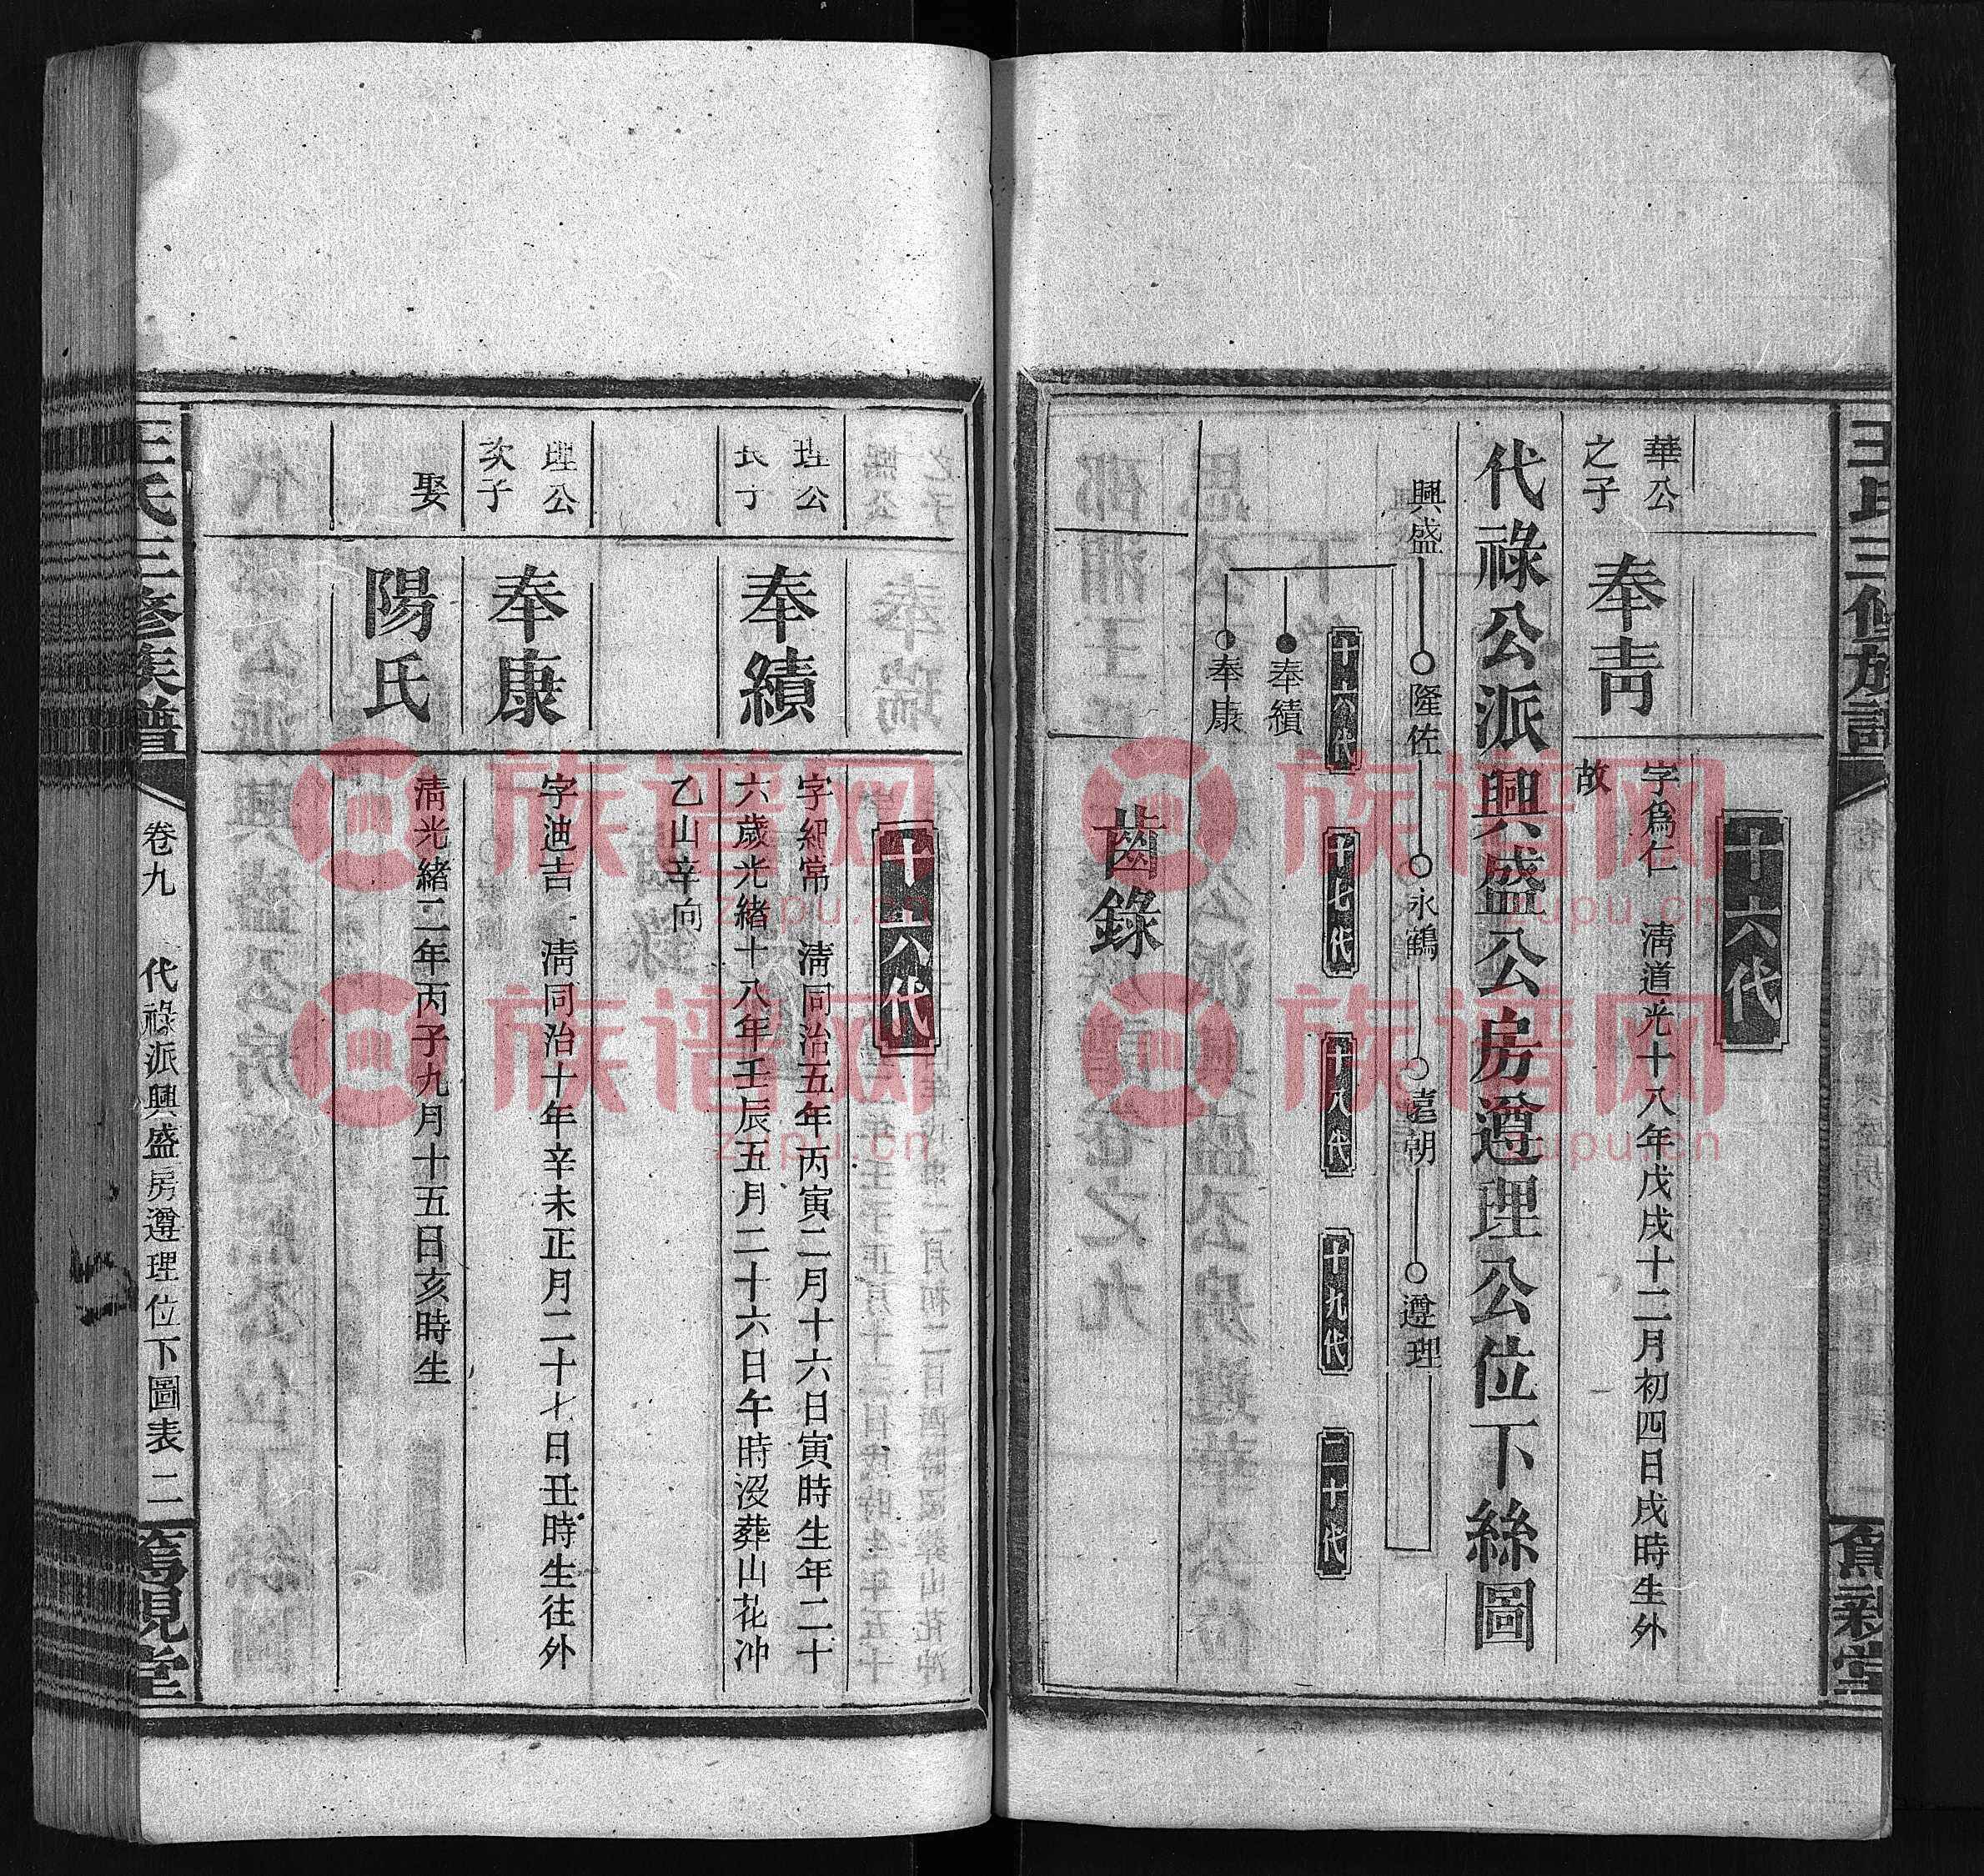 十六代
華公
之子
奉青
字爲仁　清道光十八年戊戌十二月初四日戌時生外
故
代祿公派興盛公房遵理公位下絲圖
興盛
隆佐
永鶴
遠朝
遵理
十六代
十七代
十八代
十九代
二十代
奉績
奉康
齒錄
十六代
理公
長子
奉績
字紹常　清同治五年丙寅二月十六日寅時生年二十
六歲光緒十八年壬辰五月二十六日午時沒葬山花冲
乙山辛向
理公
次子
奉康
字迪吉　清同治十年辛未正月二十七日丑時生往外
娶
陽氏
清光緒二年丙子九月十五日亥時生
王氏三修族譜
卷九
代祿派興盛房遵理位下圖表
二
篤親堂
族谱网
zupu.cn
族谱网
zupu.cn
族谱网
zupu.cn
族谱网
zupu.cn